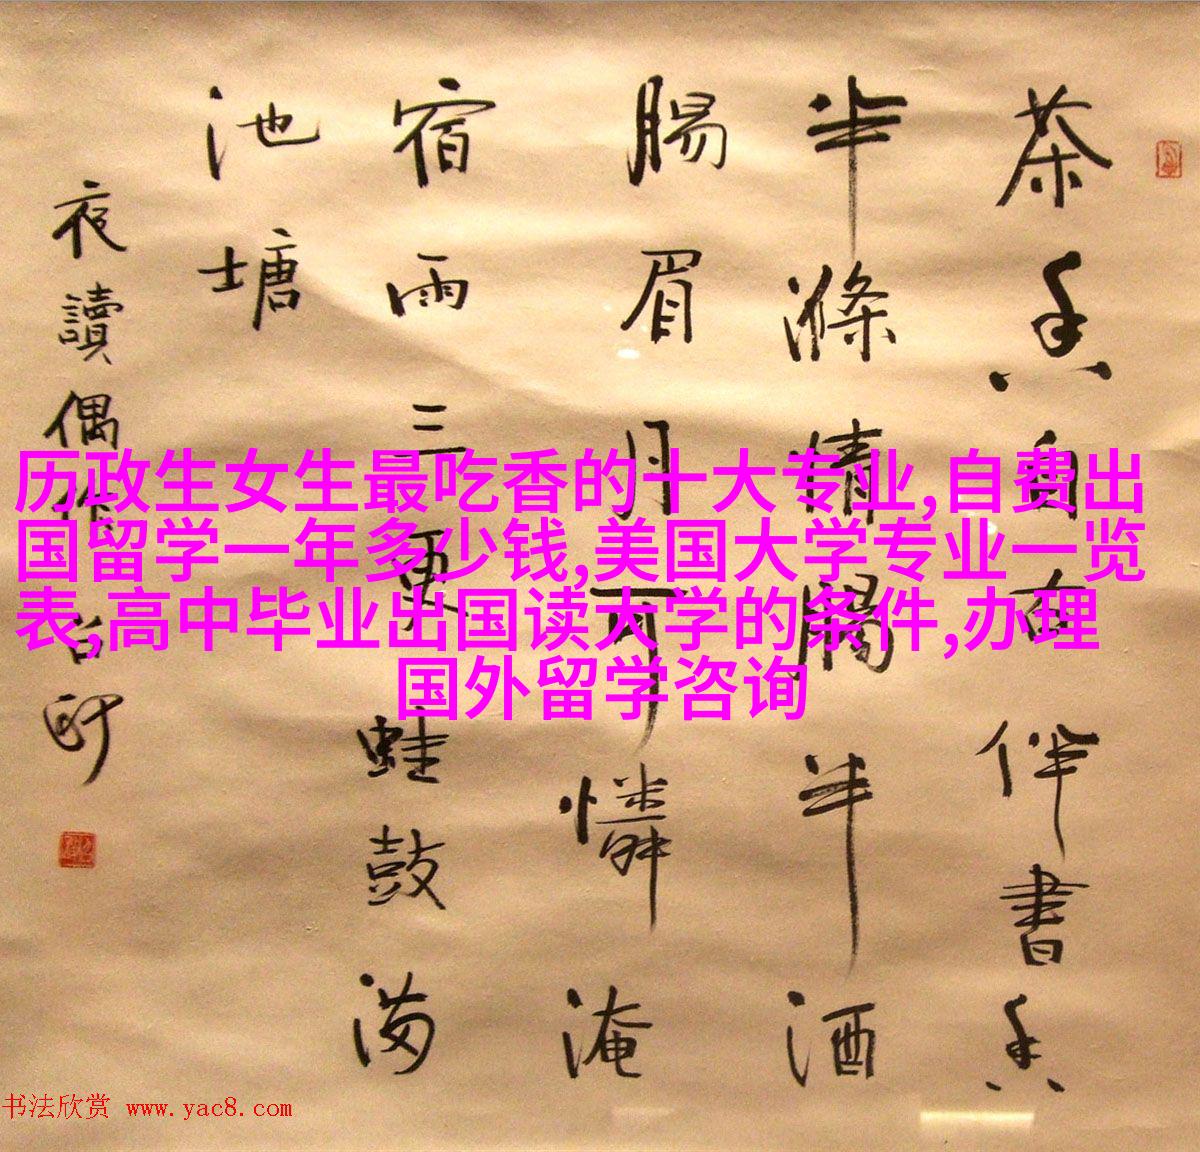 茶香自在伴書香
半滌情腸半酒
腸眉月可憐淹
宿雨三更蛙鼓满
池塘
夜讀偶作
历政生女生最吃香的十大专业,自费出
国留学一年多少钱,美国大学专业一览
表,高中毕业出国读大学的条件,办理
国外留学咨询
书法欣赏 www.yac8.com